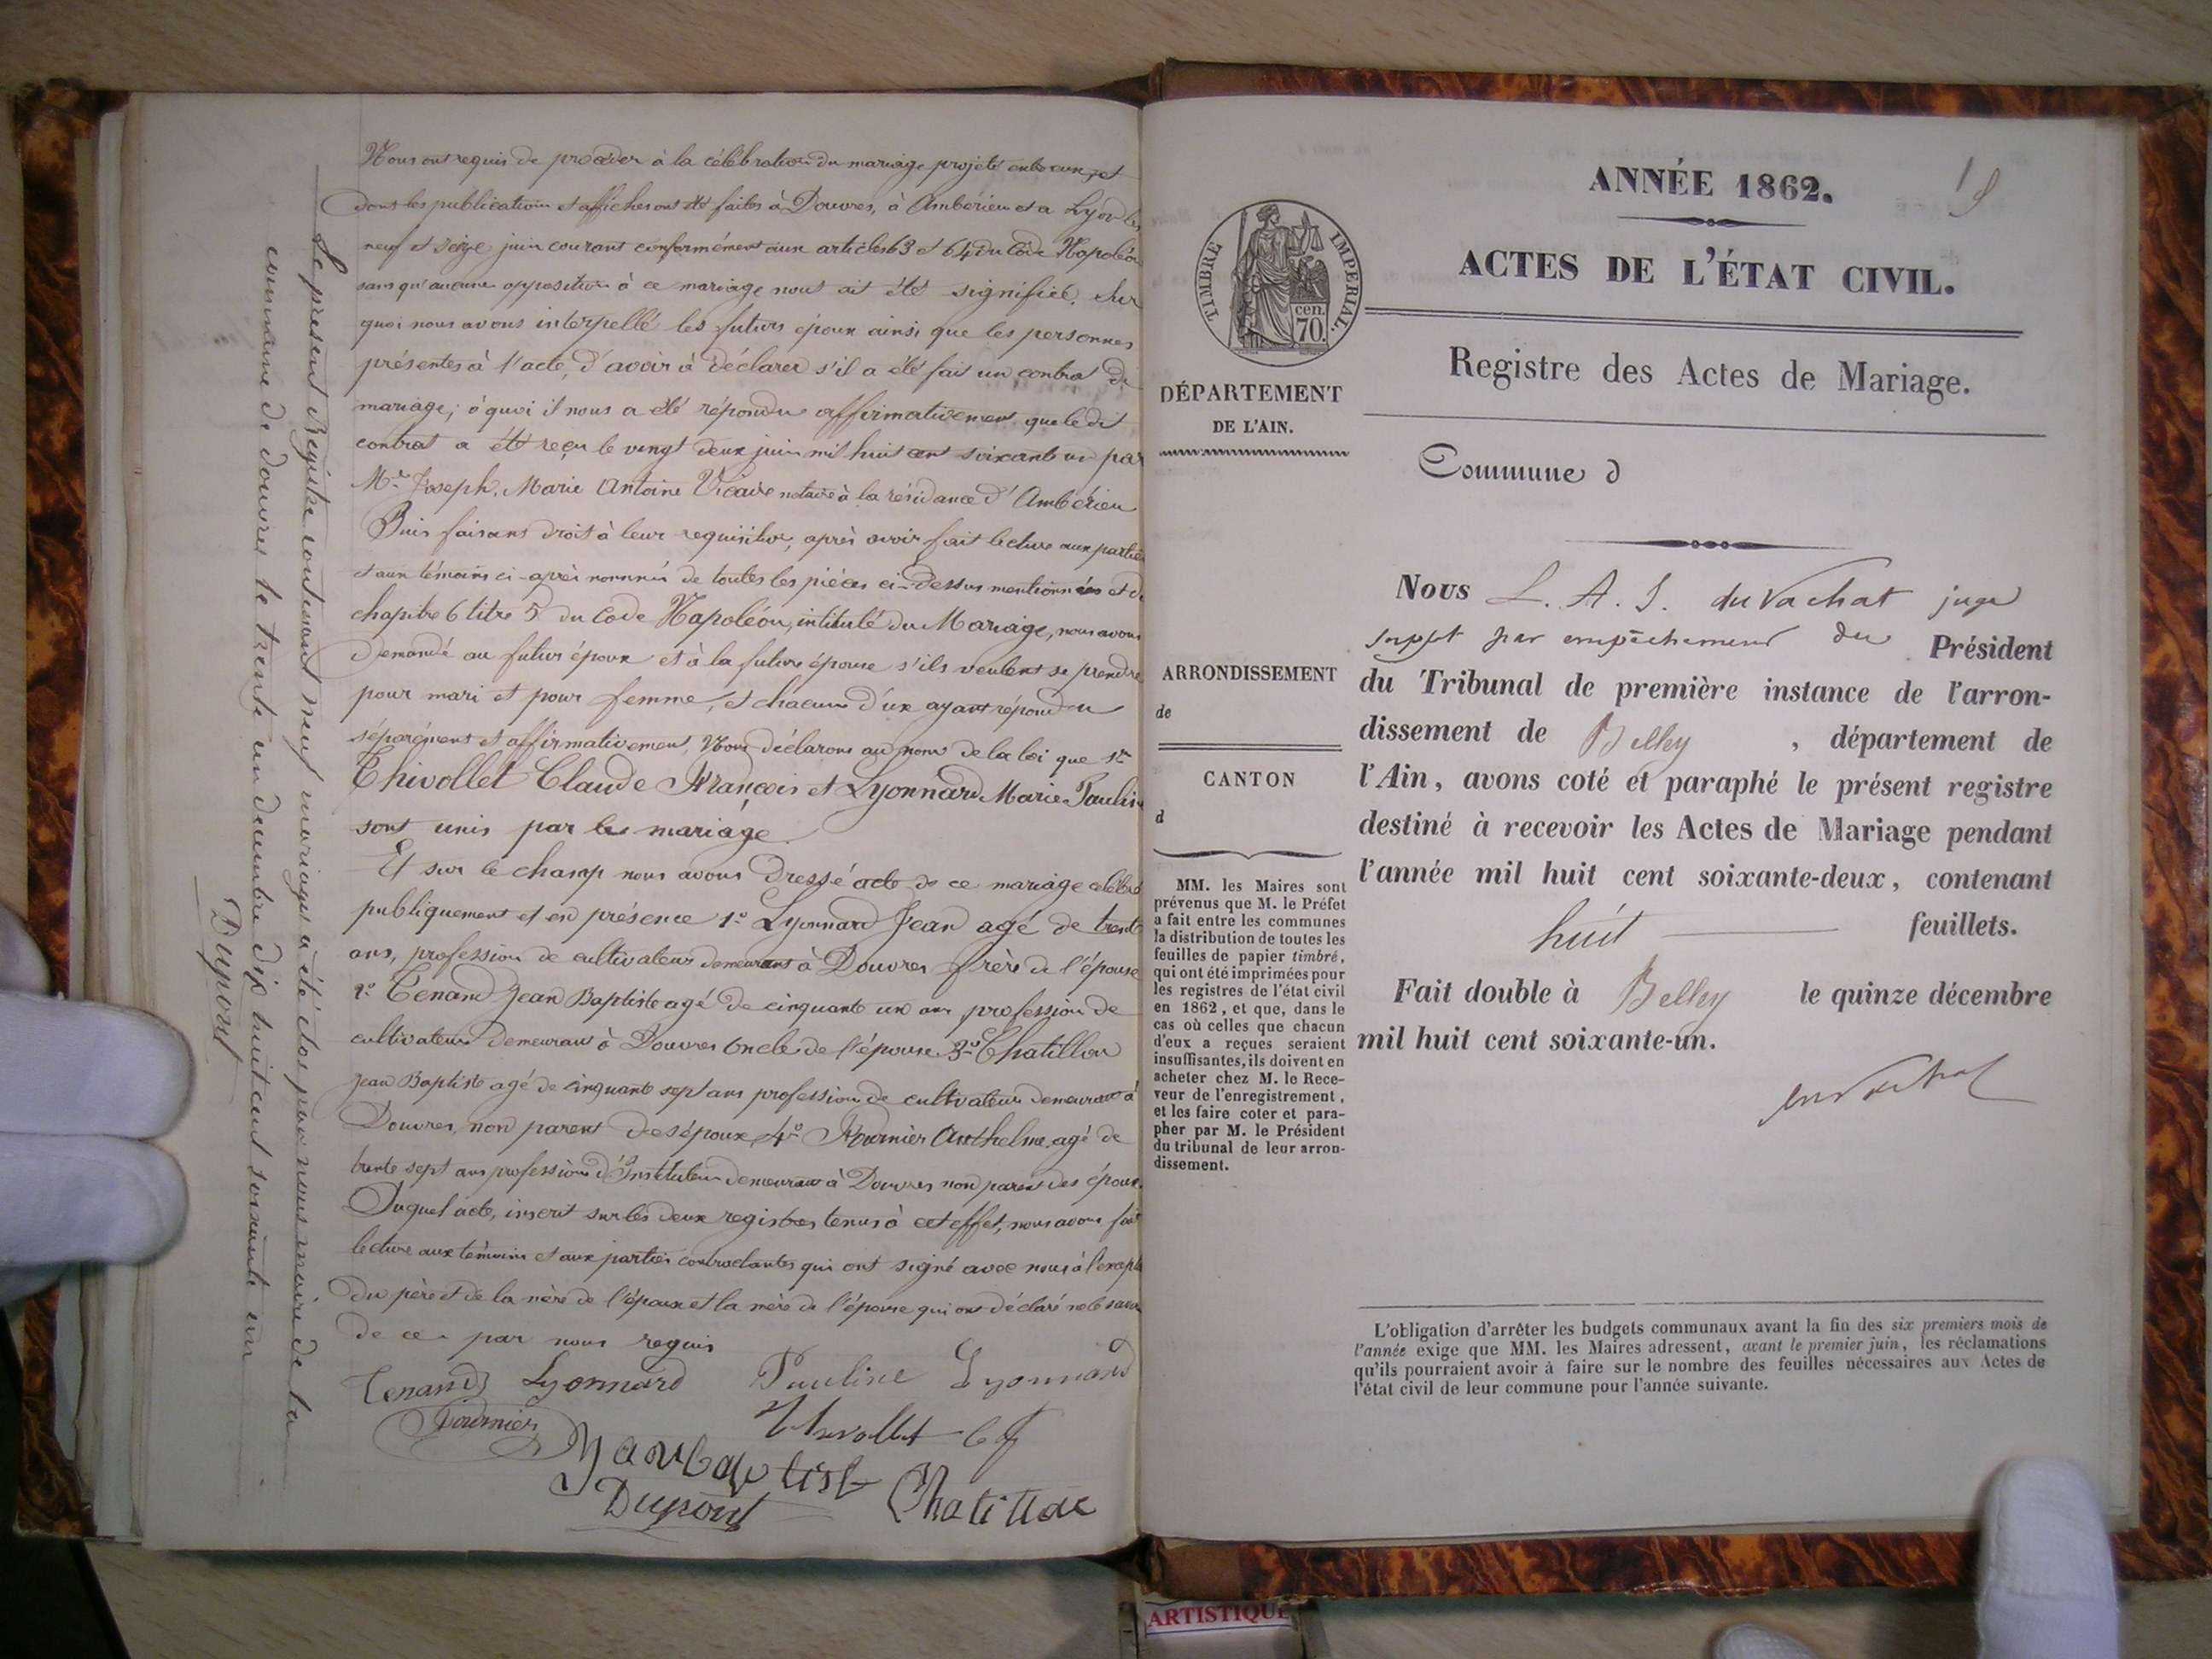 Nous ont requis de procéder à la célébration du mariage projeté entre eux, et
dont les publications et affiches ont été faites à Douvres, à Ambérieu et à Lyon les
neuf et seize juin courant conformément aux articles 63 et 64 du Code Napoléon
sans qu'aucune opposition à ce mariage nous ait été signifiée. Sur
quoi nous avons interpellé les futurs époux ainsi que les personnes
présentes à l'acte, d'avoir à déclarer s'il a été fait un contrat de
mariage; à quoi il nous a été répondu affirmativement que le dit
contrat a été reçu le vingt deux juin mil huit cent soixante un par
Me Joseph, Marie Antoine Vicaire notaire à la résidance d'Ambérieu
Puis faisant droit à leur requisition, après avoir fait lecture aux parties
et aux témoins ci-après nommés de toutes les pièces ci-dessus mentionnées et du
chapitre 6 titre 5 du Code Napoléon, intitulé du Mariage, nous avons
demandé au futur époux et à la future épouse s'ils veulent se prendre
pour mari et pour femme, et chacun d'eux ayant répondu
séparément et affirmativement, Nous déclarons au nom de la loi que
Thivollet Claude François et Lyonnard Marie Pauline
sont unis par le mariage
Et sur le champ nous avons dressé acte de ce mariage célébré
publiquement et en présence 1º Lyonnard Jean agé de trente
ans, profession de cultivateur demeurant à Douvres frère de l'épouse
2º Tenand Jean Baptiste agé de cinquante un ans profession de
cultivateur demeurant à Douvres oncle de l'épouse 3º Chatillon
Jean Baptiste agé de cinquante sept ans profession de cultivateur demeurant à
Douvres, non parent des époux, 4º Fournier Anthelme, agé de
trente sept ans profession d'Instituteur demeurant à Douvres non parent des époux.
Duquel acte, inscrit sur les deux registres tenus à cet effet, nous avons fait
lecture aux témoins et aux parties contractantes qui ont signé avec nous à l'except
du père et de la mère de l'époux et la mère de l'épouse qui ont déclaré ne le savoir
de ce par nous requis
Tenand Lyonnard Pauline Lyonnard
Fournier Thivollet Cf
Janbaptist Chatillon
Dupont
Le présent Régistre contenant neuf mariages a été clos par nous maire de la
commune de douvres le trente un décembre dix huit cent soixante un
Dupont
TIMBRE IMPERIAL.
cen.
70.
DÉPARTEMENT
DE L'AIN.
ARRONDISSEMENT
de
CANTON
d
MM. les Maires sont
prévenus que M. le Préfet
a fait entre les communes
la distribution de toutes les
feuilles de papier timbré,
qui ont été imprimées pour
les registres de l'état civil
en 1862, et que, dans le
cas où celles que chacun
d'eux a reçues seraient
insuffisantes, ils doivent en
acheter chez M. le Rece-
veur de l'enregistrement,
et les faire coter et para-
pher par M. le Président
du tribunal de leur arron-
dissement.
ANNÉE 1862.
ACTES DE L'ÉTAT CIVIL.
Registre des Actes de Mariage.
Commune d
Nous L. A. J. du Vachat juge
suppt par empêchement du Président
du Tribunal de première instance de l'arron-
dissement de Belley , département de
l'Ain, avons coté et paraphé le présent registre
destiné à recevoir les Actes de Mariage pendant
l'année mil huit cent soixante-deux, contenant
huit feuillets.
Fait double à Belley le quinze décembre
mil huit cent soixante-un.
L'obligation d'arrêter les budgets communaux avant la fin des six premiers mois de
l'année exige que MM. les Maires adressent, avant le premier juin, les réclamations
qu'ils pourraient avoir à faire sur le nombre des feuilles nécessaires aux Actes de
l'état civil de leur commune pour l'année suivante.
ARTISTIQUE